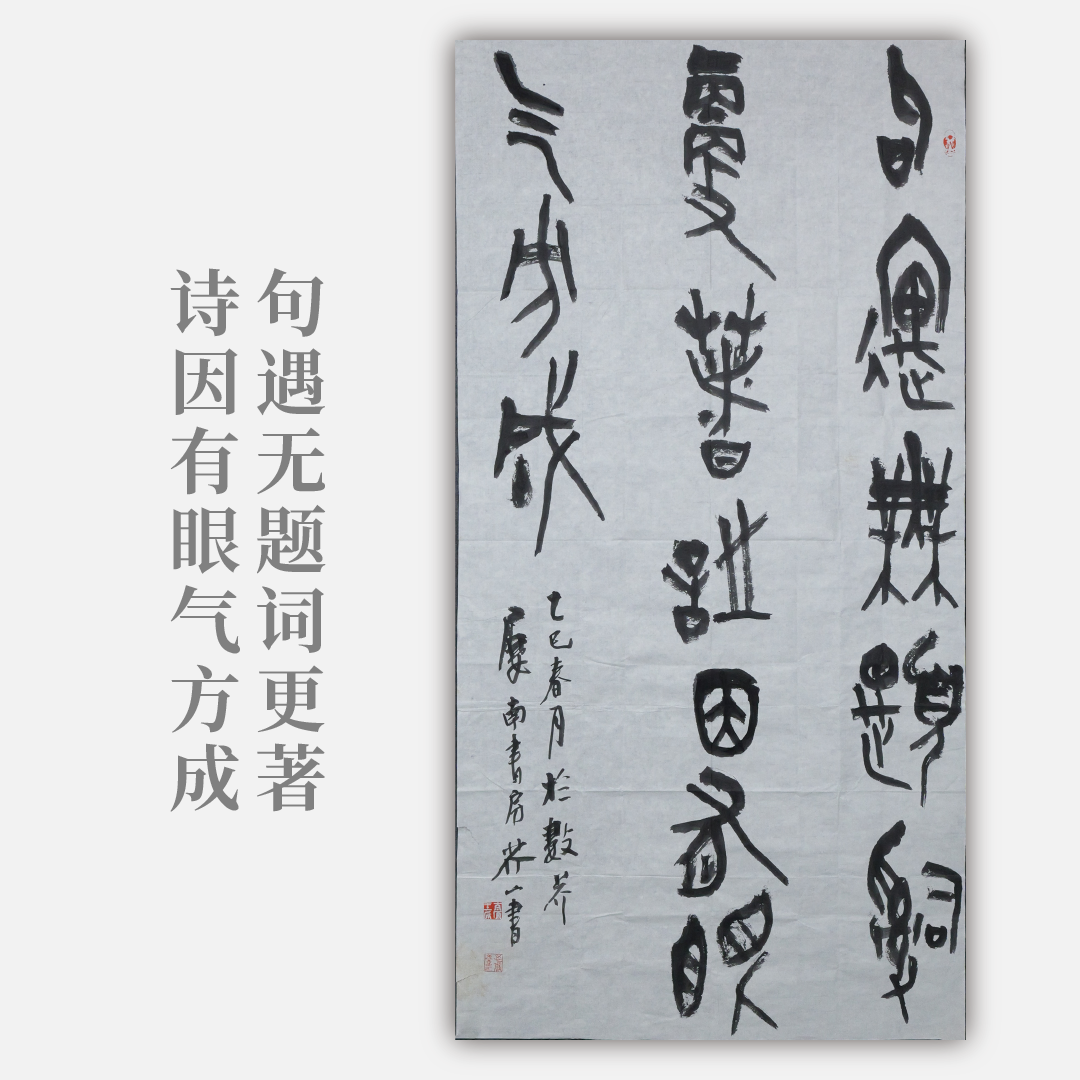 句遇无题词更著
诗因有眼气方成
句遇無題詞
更著詩因有眼
气方成
乙巳春月於數芥
南書房 一書